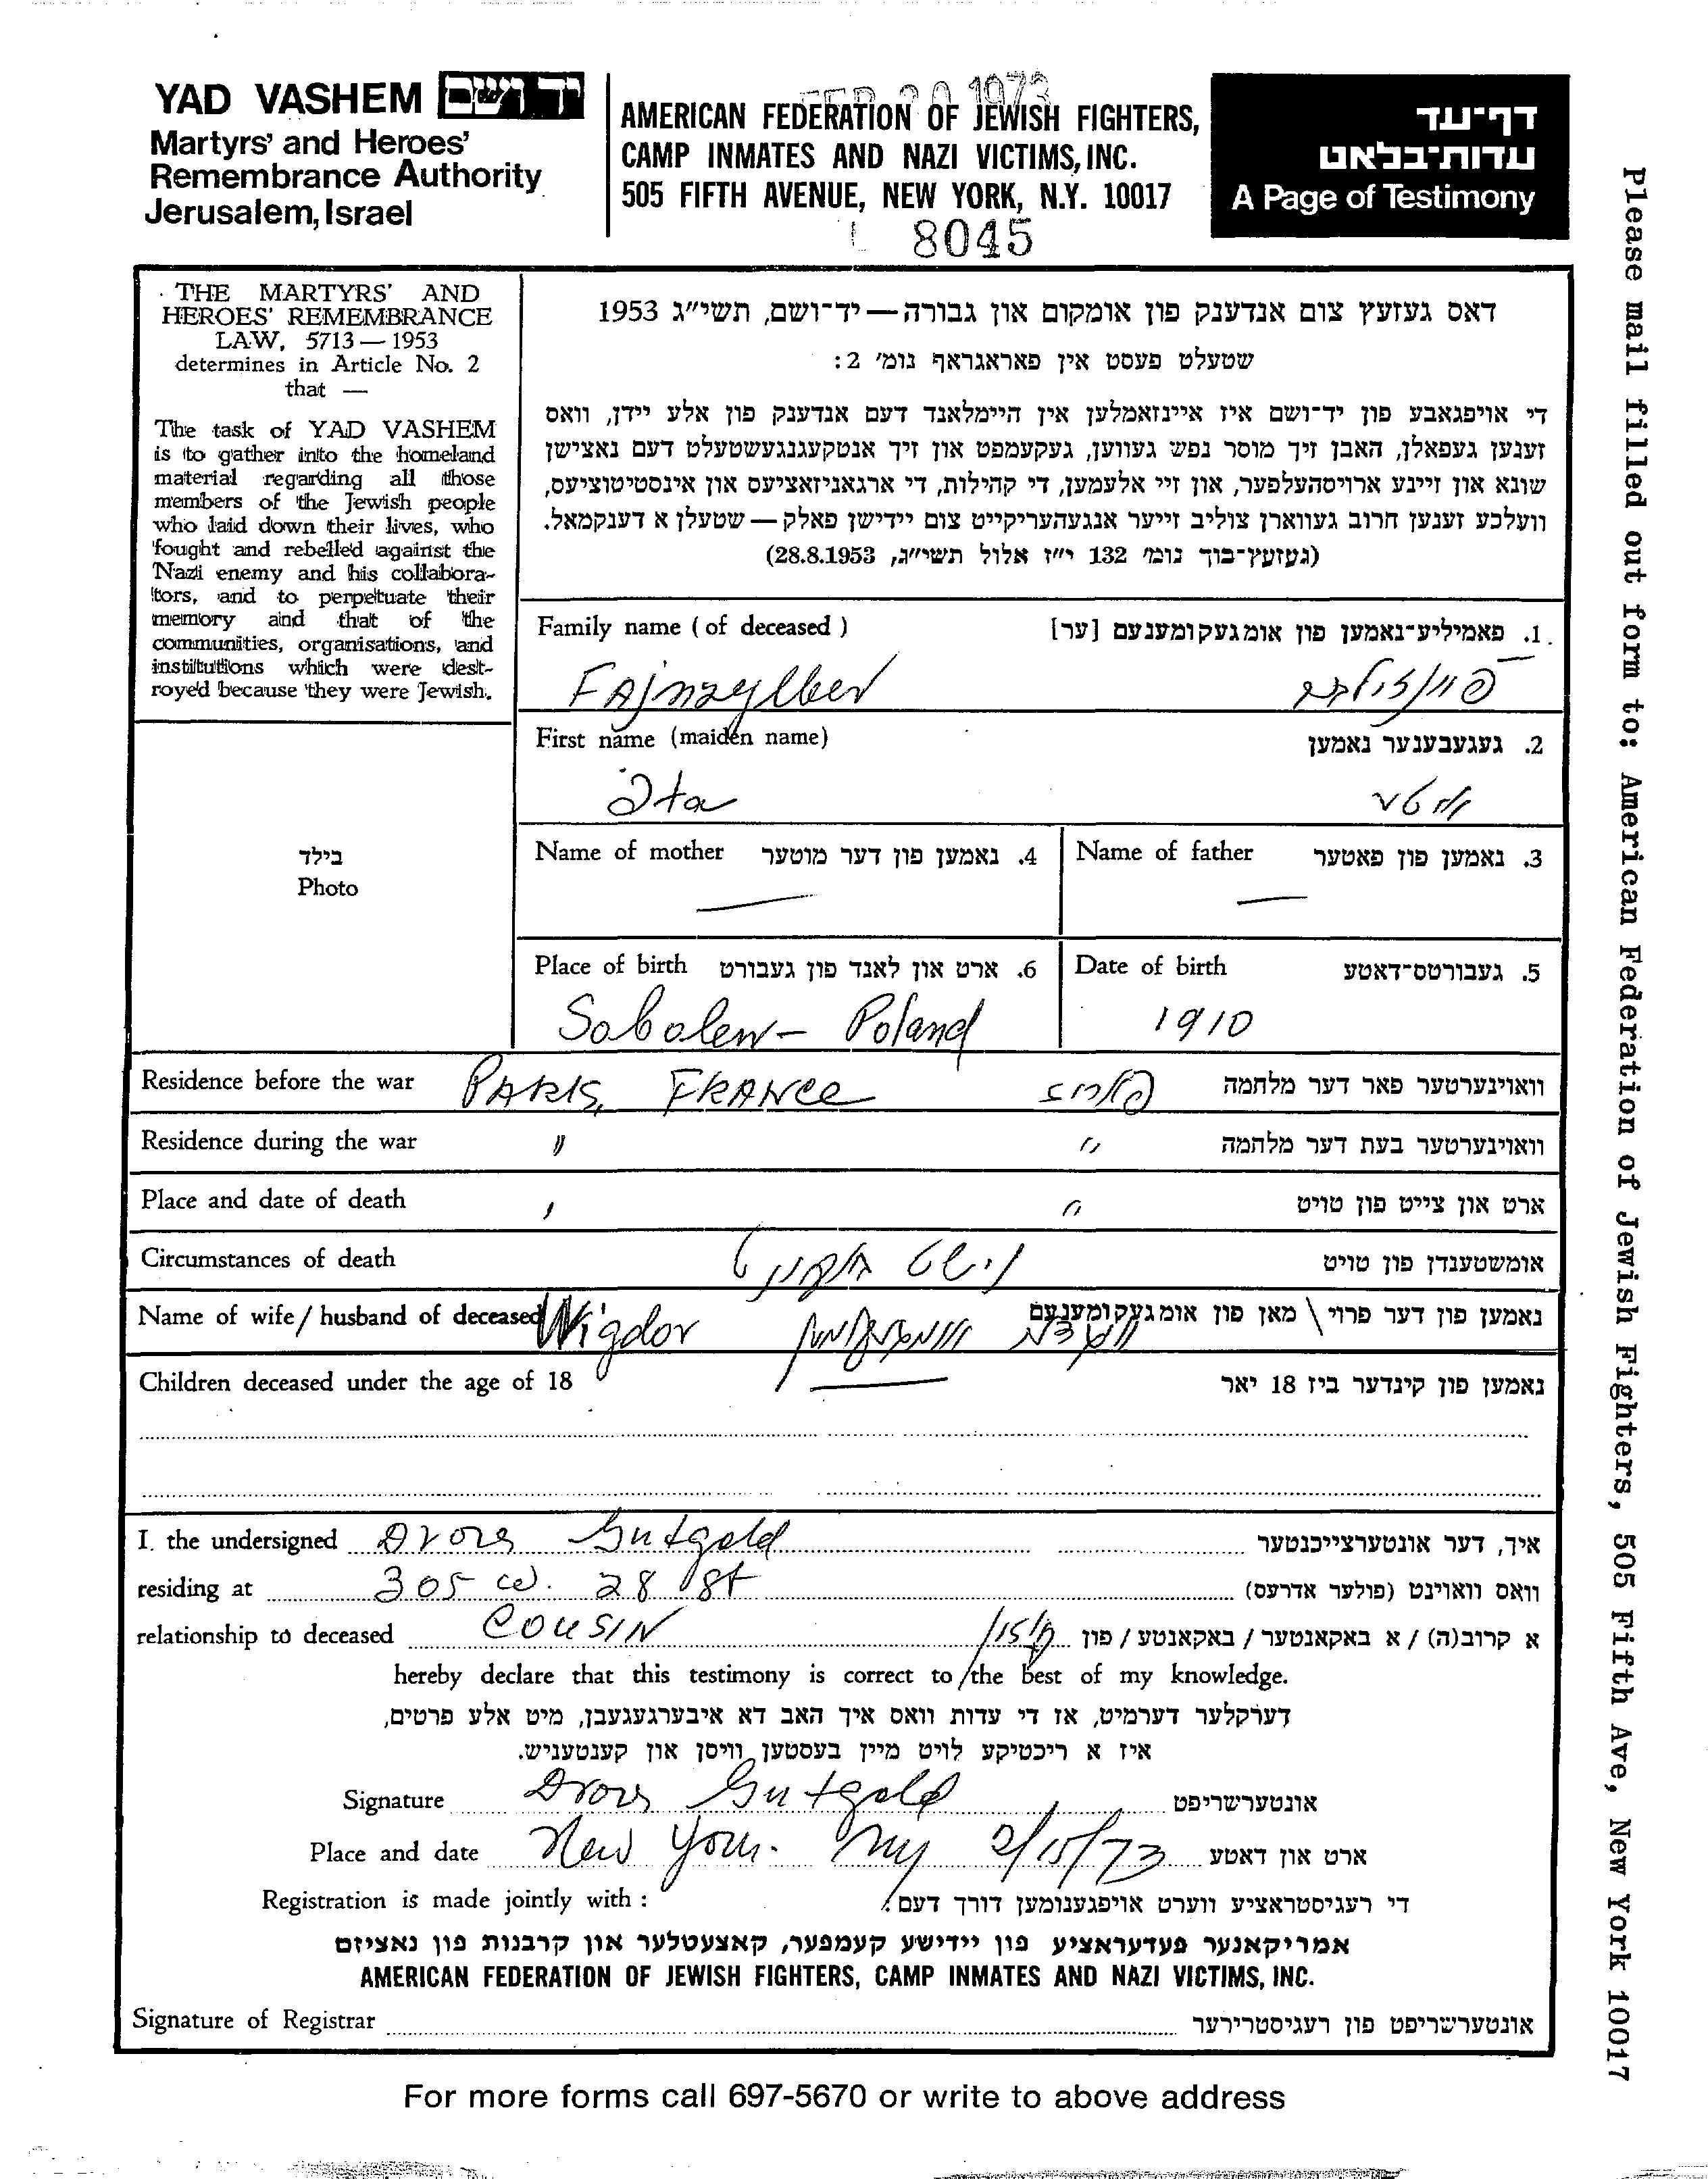 YAD VASHEM יד ושם
Martyrs' and Heroes'
Remembrance Authority
Jerusalem, Israel
FEB 20 1973
AMERICAN FEDERATION OF JEWISH FIGHTERS,
CAMP INMATES AND NAZI VICTIMS, INC.
505 FIFTH AVENUE, NEW YORK, N.Y. 10017
8045
דף־עד
עדות־בלאט
A Page of Testimony
THE MARTYRS' AND
HEROES' REMEMBRANCE
LAW, 5713 — 1953
determines in Article No. 2
that —
The task of YAD VASHEM
is to gather into the homeland
material regarding all those
members of the Jewish people
who laid down their lives, who
fought and rebelled against the
Nazi enemy and his collabora-
tors, and to perpetuate their
memory and that of the
communities, organisations, and
institutions which were dest-
royed because they were Jewish.
דאס געזעץ צום אנדענק פון אומקום און גבורה — יד־ושם, תשי״ג 1953
שטעלט פעסט אין פאראגראף נומ׳ 2:
די אויפגאבע פון יד־ושם איז איינזאמלען אין היימלאנד דעם אנדענק פון אלע יידן, וואס
זענען געפאלן, האבן זיך מוסר נפש געווען, געקעמפט און זיך אנטקעגנגעשטעלט דעם נאצישן
שונא און זיינע ארויסהעלפער, און זיי אלעמען, די קהילות, די ארגאניזאציעס און אינסטיטוציעס,
וועלכע זענען חרוב געווארן צוליב זייער אנגעהעריקייט צום יידישן פאלק — שטעלן א דענקמאל.
(געזעץ־בוך נומ׳ 132 י״ז אלול תשי״ג, 28.8.1953)
Family name (of deceased) 1. פאמיליע־נאמען פון אומגעקומענעם [ער]
Fajnzylber
First name (maiden name) 2. געגעבענער נאמען
Ita איטע
Name of mother 4. נאמען פון דער מוטער
Name of father 3. נאמען פון פאטער
— —
Place of birth 6. ארט און לאנד פון געבורט
Date of birth 5. געבורטס־דאטע
Sobolew - Poland 1910
Residence before the war PARIS, FRANCE פאריז וואוינערטער פאר דער מלחמה
Residence during the war " " וואוינערטער בעת דער מלחמה
Place and date of death " " ארט און צייט פון טויט
Circumstances of death נישט אומשטענדן פון טויט
Name of wife / husband of deceased Wigdor נאמען פון דער פרוי \ מאן פון אומגעקומענעם
Children deceased under the age of 18 — נאמען פון קינדער ביז 18 יאר
I. the undersigned Drora Gutgold איך, דער אונטערצייכנטער
residing at 305 W. 28 St וואס וואוינט (פולער אדרעס)
relationship to deceased COUSIN א קרוב(ה) / א באקאנטער / באקאנטע / פון
hereby declare that this testimony is correct to the best of my knowledge.
דערקלער דערמיט, אז די עדות וואס איך האב דא איבערגעגעבן, מיט אלע פרטים,
איז א ריכטיקע לויט מיין בעסטען וויסן און קענטעניש.
Signature Drora Gutgold אונטערשריפט
Place and date New York. NY 2/15/73 ארט און דאטע
Registration is made jointly with: די רעגיסטראציע ווערט אויפגענומען דורך דעם:
אמריקאנער פעדעראציע פון יידישע קעמפער, קאצעטלער און קרבנות פון נאציזם
AMERICAN FEDERATION OF JEWISH FIGHTERS, CAMP INMATES AND NAZI VICTIMS, INC.
Signature of Registrar אונטערשריפט פון רעגיסטרירער
בילד
Photo
For more forms call 697-5670 or write to above address
Please mail filled out form to: American Federation of Jewish Fighters, 505 Fifth Ave, New York 10017